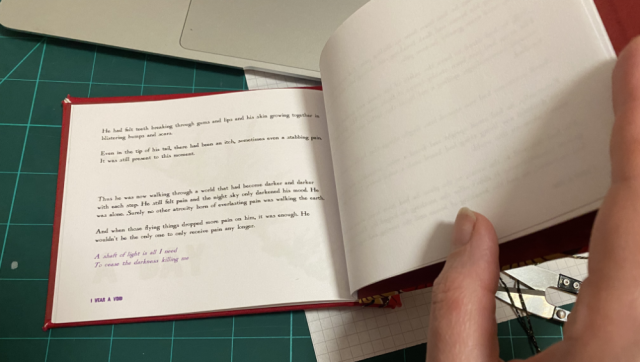 He had felt teeth breaking through gums and lips and his skin growing together in
blistering bumps and scars.
Even in the tip of his tail, there had been an itch, sometimes even a stabbing pain.
It was still present to this moment.
Thus he was now walking through a world that had become darker and darker
with each step. He still felt pain and the night sky only darkened his mood. He
was alone. Surely no other atrocity born of everlasting pain was walking the earth.
And when those flying things dropped more pain on him, it was enough. He
wouldn't be the only one to only receive pain any longer.
A shaft of light is all I need
To cease the darkness killing me
I WEAR A VOID